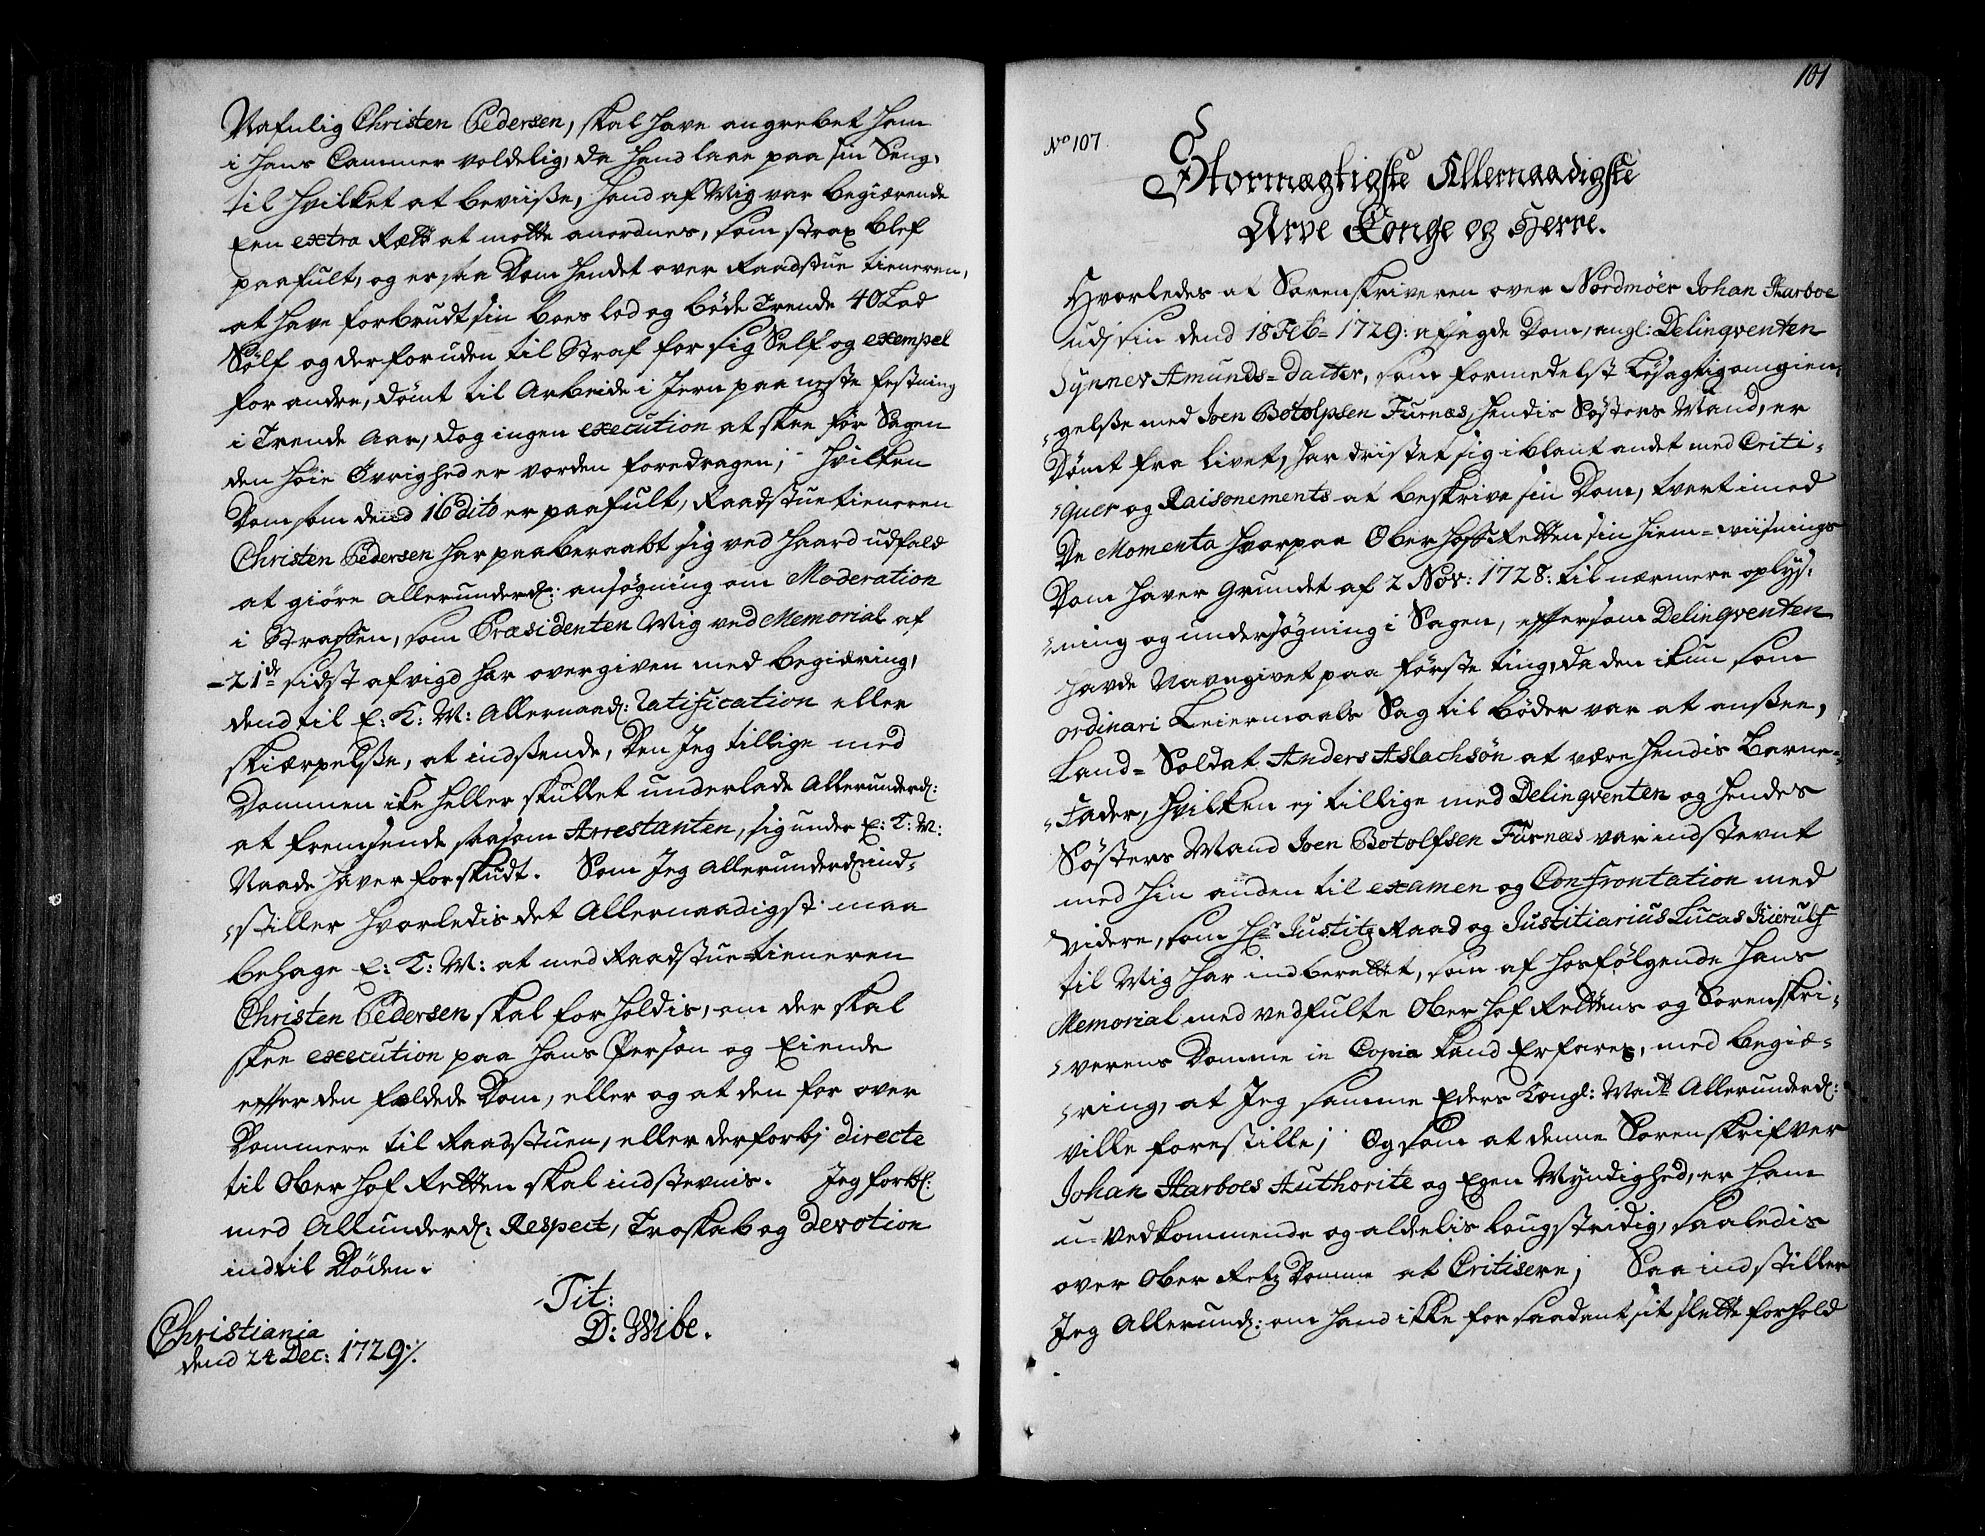 Nafnlig Christen Pedersen, skal have angrebet ham
i hans Cammer voldelig, da hand laae paa sin Seng,
til hvilket at beviiße, hand af Mig var begiærende
Een extra Rætt at motte anordnes, som strax blef
paafult, og er saa Dom hendet over Raadstue tieneren,
at have forbrudt sin boes lod og bøde Trende 40 Lod
Sølf og derforuden til Straf for sig Self og exempel
for andre, dømt til Arbeide i Jern paa neste festning
i Trende Aar, dog ingen execution at skee før Sagen
den høie Øvrighed er vorden foredragen; hvilken
Dom som dend 16 dito er paafult, Raadstuetieneren
Christen Pedersen har paaberaabt sig ved haard udfald
at giøre allerunderd: ansøgning om Moderation
i Straffen, som Præsidenten Mig ved Memorial af
21de sidst afvigd har overgiven med begiæring,
dend til E: K: M: Allernaad: Ratification eller
skiærpelße, at indßende, Den Jeg tillige med
Dommen ike heller skullet underlade Allerunderd:
at fremsende saasom Arrestanten, sig under E: K: M:
Naade haver forskudt. Som Jeg Allerunderd: ind-
stiller hvorledis det Allernaadigst maa
behage E: K: M: at med Raadstuetieneren
Christen Pedersen skal forholdis, om der skal
skee execution paa hans Person og Eiende
effter den fældede Dom, eller og at den for over
Dommere til Raadstuen, eller derforbj directe
til Ober Hof Retten skal indstevnis. Jeg forbl:
med Allunderd: Respect, Troskab og Devotion
indtil Døden.
Tit:
D: Wibe.
Christiania
dend 24 Dec: 1729 ./.
101
No 107.
Stormægtigste Allernaadigste
Arve Konge og Herre.
Hvorledes at Sorenskriveren over Nordmøer Johan Harboe
udj sin dend 18 Feb= 1729: afsagde Dom, angl: Delinqventen
Synnev Amunds=datter, som formedelst Løsagtig omgien-
gelße med Joen Botolpsen Furnæs, hendis Søsters Mand, er
Dømt fra livet, har dristet sig iblant andet med Criti-
quer og Raisonements at beskrive sin Dom, tvert imod
De Momenta hvorpaa Ober Hoff Retten sin hiem=wiisnings
Dom haver Grundet af 2 Nov: 1728: til nærmere oplys-
ning og undersøgning i Sagen, efftersom Delinqventen
havde Navngivet paa første ting, da den ikun som
ordinari Leiermaals Sag til bøder var at anßee,
Land=Soldat Anders Aslachsøn at være hendis Barne-
Fader, hvilken ej tillige med Delinqventen og hendes
Søsters Mand Joen Botolfsen Furnæs var indstevnt
med hin anden til examen og Confrontation med
videre, som Hr Justitz Raad og Justitiarius Lucas Kierulf
til Mig har indberettet, som af hosfølgende hans
Memorial med vedfulte Ober Hof Rettens og Sorenskri-
verens Domme in Copia kand Erfares, med begiæ-
ring, at Jeg samme Eders Kongl: Maitt Allerunderd:
ville forestille; Og som at denne Sorenskrifver
Johan Harboes Authorite og Egen Myndighed, er ham
u=vedkommende og aldelis lougstridig, saaledis
over Ober Retz Domme at Critisere; Saa indstiller
Jeg Allerund: om hand ikke for saadent sit slette forhold